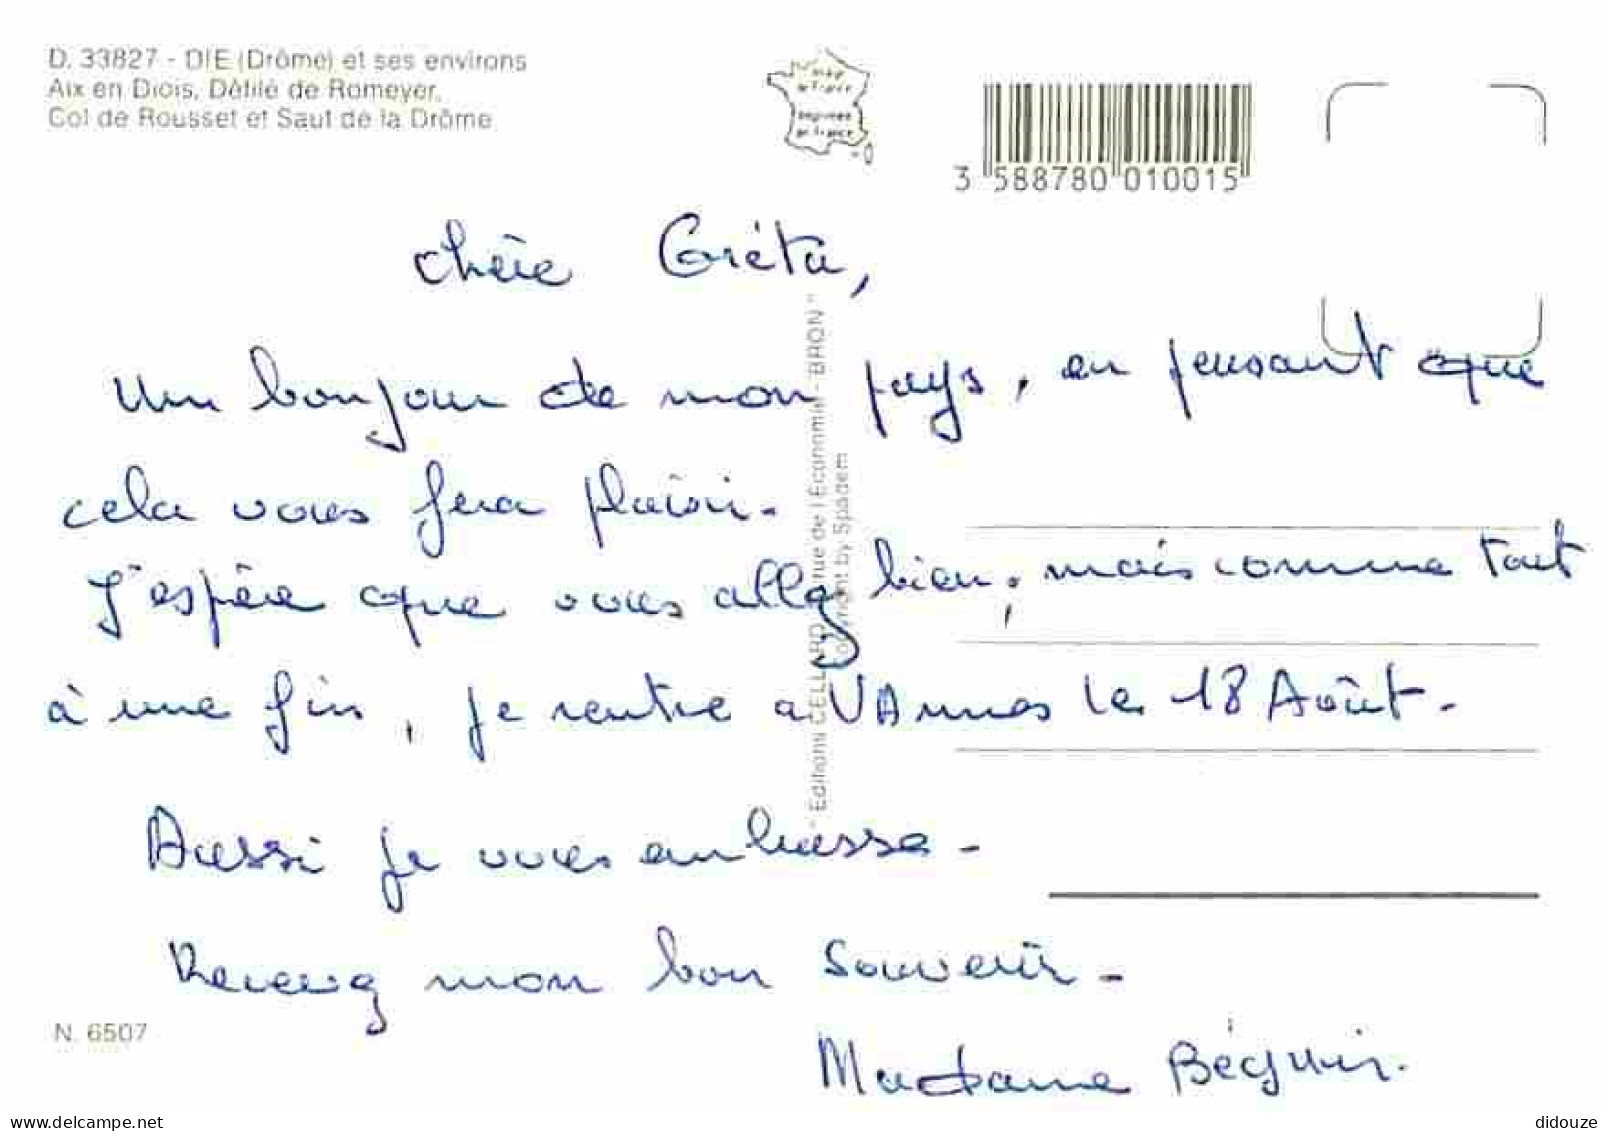 D. 33827 - DIE (Drôme) et ses environs
Aix en Diois, Défilé de Romeyer,
Col de Rousset et Saut de la Drôme
3 588780 010015
chère Gréta,
Un bonjour de mon pays, en pensant que
cela vous fera plaisir.
J'espère que vous allez bien, mais comme tout
à une fin, je rentre a VAnnes le 18 Août.
Aussi je vous embrasse -
Recevez mon bon Souvenir -
Madame Béguin.
"Editions CELLARD, rue de l'Economie - BRON"
Copyright by Spadem
N. 6507
didouze